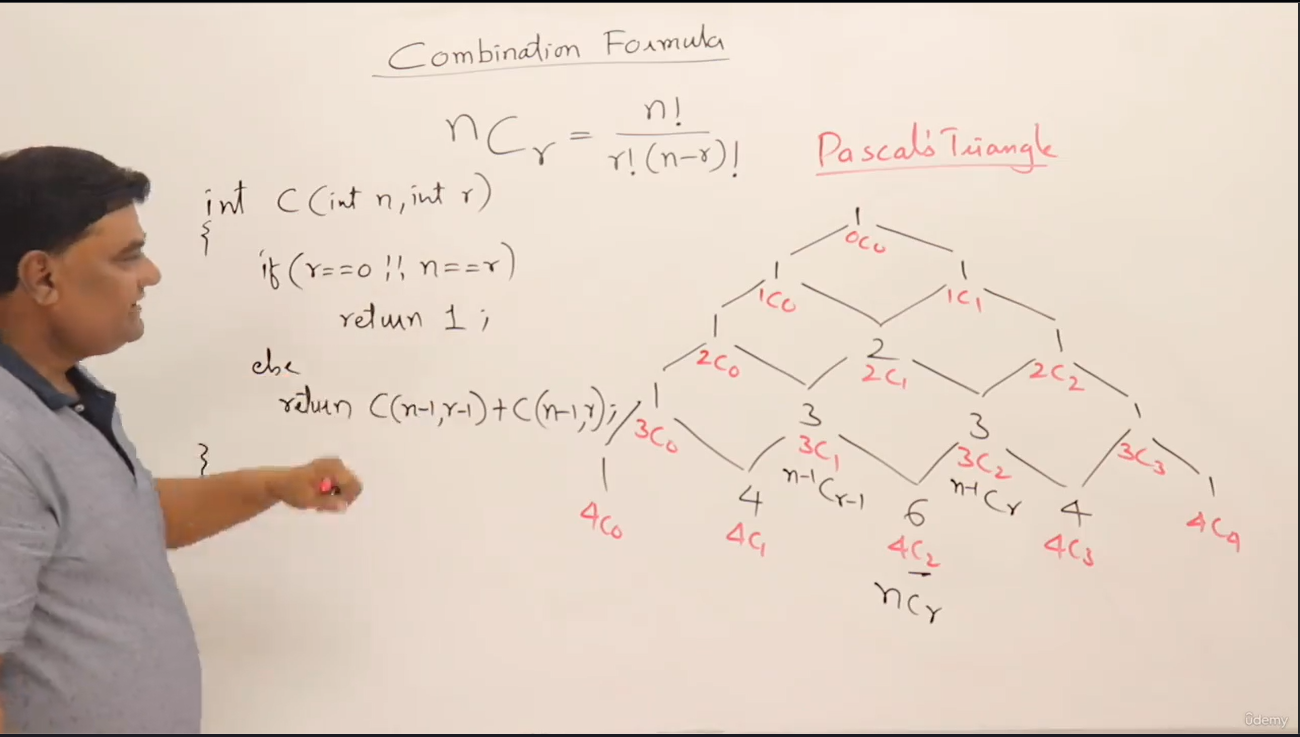 Combination Formula
nCr = n! / r!(n-r)!
Pascal's Triangle
int C(int n, int r)
{
if(r==0 || n==r)
return 1;
else
return C(n-1,r-1)+C(n-1,r);
}
1
0C0
1 1
1C0 1C1
1 2 1
2C0 2C1 2C2
1 3 3 1
3C0 3C1 3C2 3C3
n-1Cr-1 n-1Cr
1 4 6 4 1
4C0 4C1 4C2 4C3 4C4
nCr
ûdemy